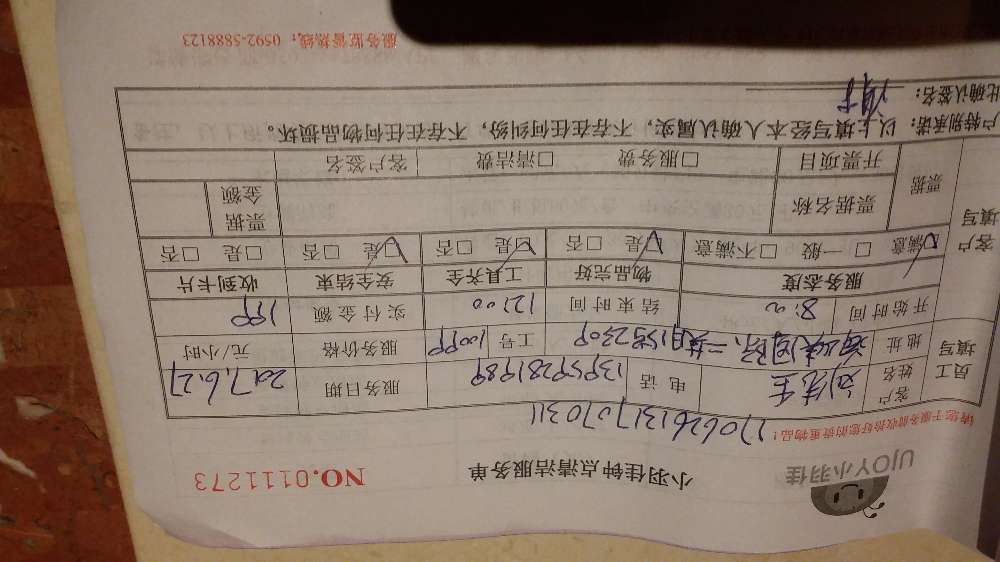 UJOY小羽佳
小羽佳钟点清洁服务单
NO.0111273
请您于服务前收拾好您的贵重物品！
17062613170311
员工填写
客户姓名 刘先生 电话 13959281989 服务日期 2017.6.27
地址 工号 10099 服务价格 元/小时
开始时间 8:00 结束时间 12:00 实付金额 199
客户填写
服务态度 物品完好 工具齐全 安全结束 收到卡片
☑满意 □一般 □不满意 ☑是 □否 ☑是 □否 ☑是 □否 □是 □否
票据 票据名称 票据金额
开票项目 □服务费 □清洁费 客户签名
户特别承诺：以上填写经本人确认属实，不存在任何纠纷，不存在任何物品损坏。
此确认签名：
服务监督热线：0592-5888123